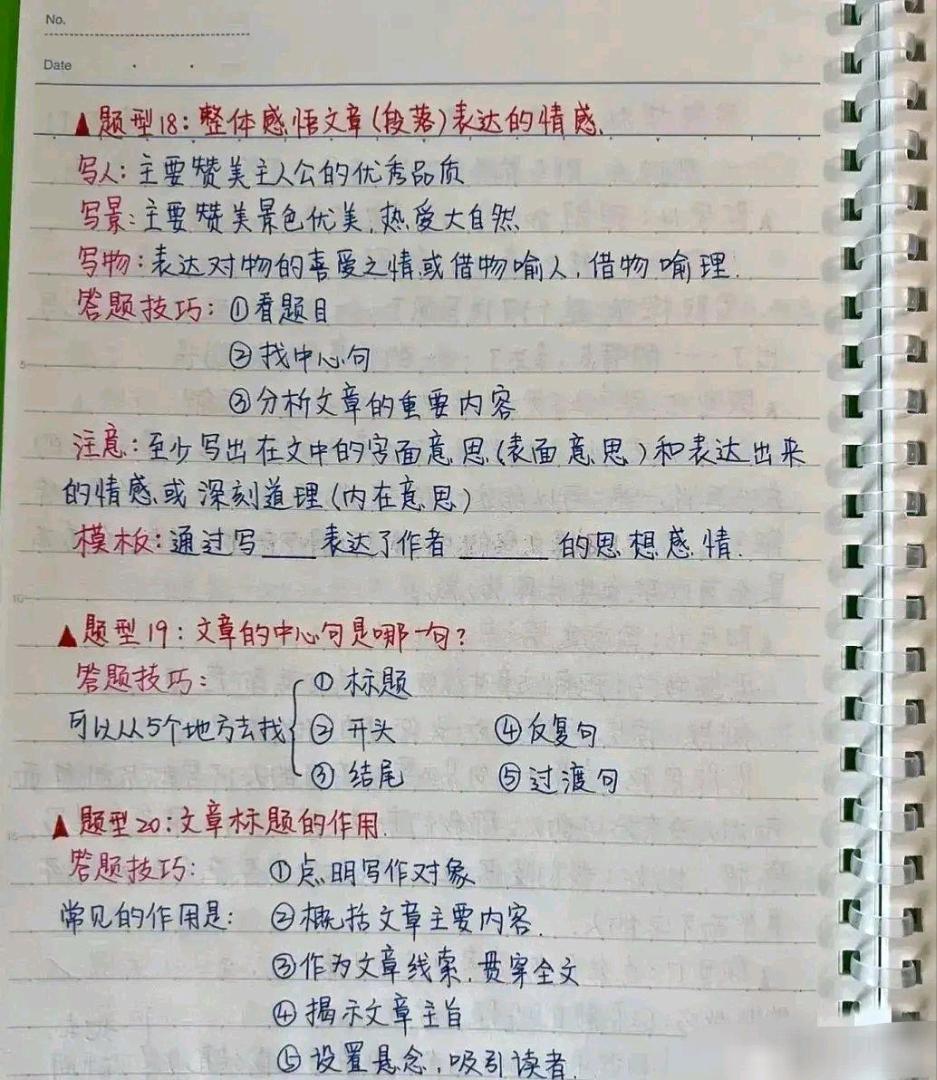 No.
Date
▲题型18:整体感悟文章(段落)表达的情感.
写人:主要赞美主人公的优秀品质
写景:主要赞美景色优美,热爱大自然
写物:表达对物的喜爱之情或借物喻人,借物喻理.
答题技巧:①看题目
②找中心句
③分析文章的重要内容
注意:至少写出在文中的字面意思(表面意思)和表达出来
的情感或深刻道理(内在意思)
模板:通过写____表达了作者______的思想感情.
▲题型19:文章的中心句是哪一句?
答题技巧: ①标题
可以从5个地方去找 ②开头 ④反复句
③结尾 ⑤过渡句
▲题型20:文章标题的作用.
答题技巧: ①点明写作对象
常见的作用是: ②概括文章主要内容.
③作为文章线索,贯穿全文
④揭示文章主旨
⑤设置悬念,吸引读者.